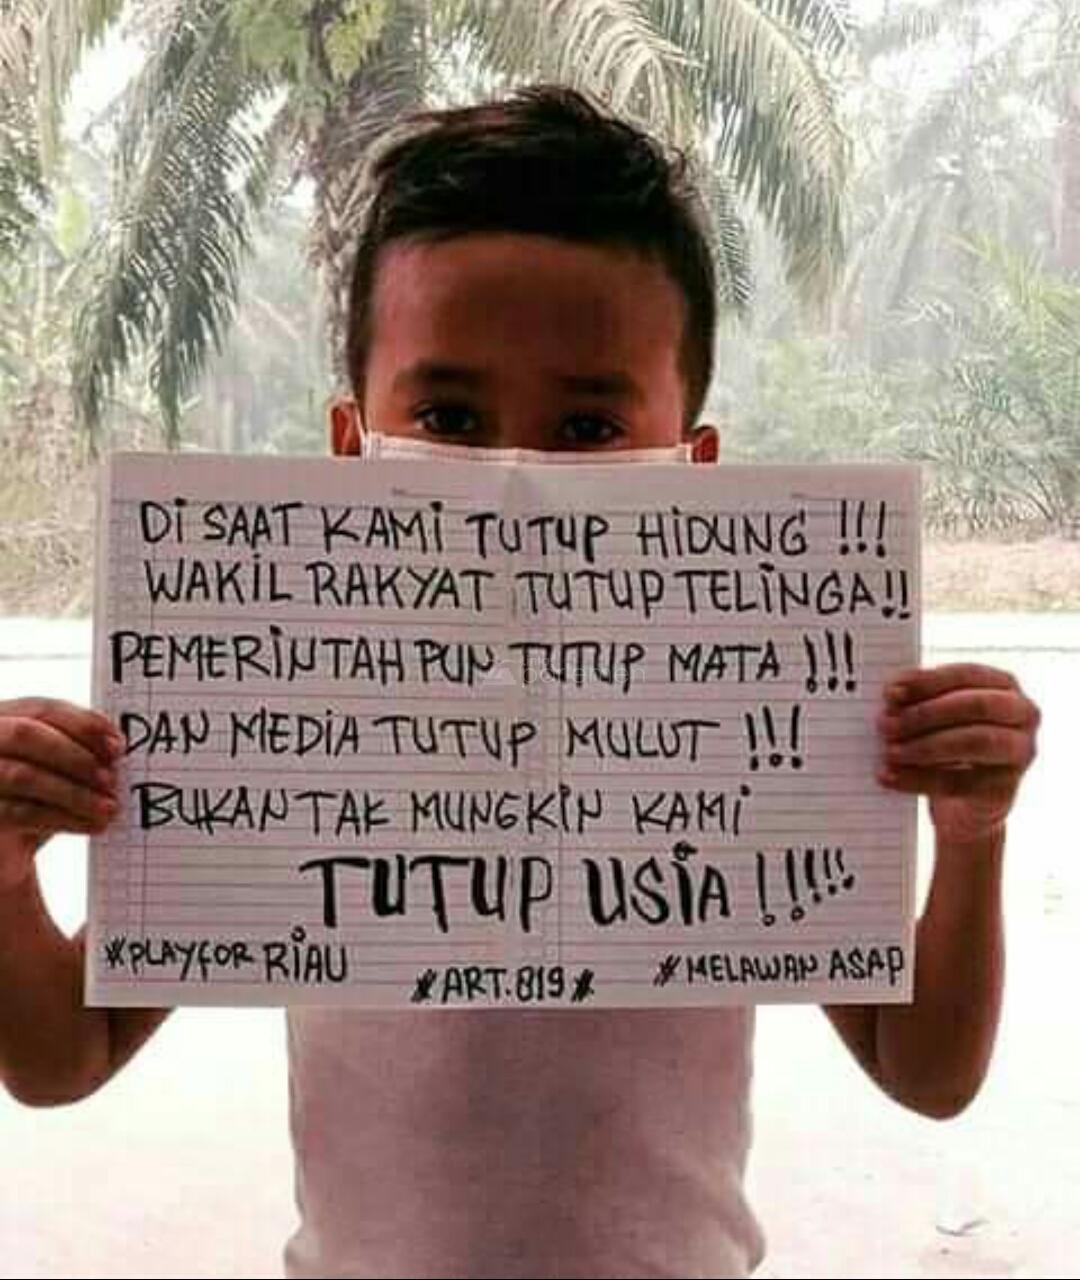 Di SAAT KAMi TUTUP HiDUNG !!!
WAKiL RAKYAT TUTUP TELiNGA!!
PEMERiNTAH PUN TUTUP MATA !!!
DAN MEDiA TUTUP MULUT !!!
BUKAN TAK MUNGKiN KAMi
TUTUP USiA !!!!!
#PLAYFOR RiAU
#ART.819#
#MELAWAN ASAP